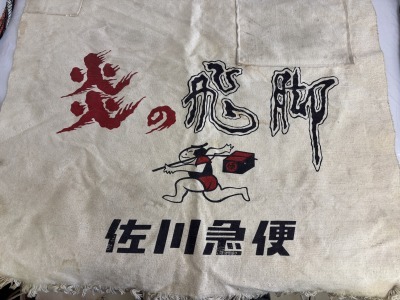 炎の飛脚
佐川急便